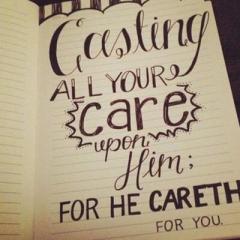 Casting
ALL YOUR
care
upon
Him;
FOR HE CARETH
FOR YOU.